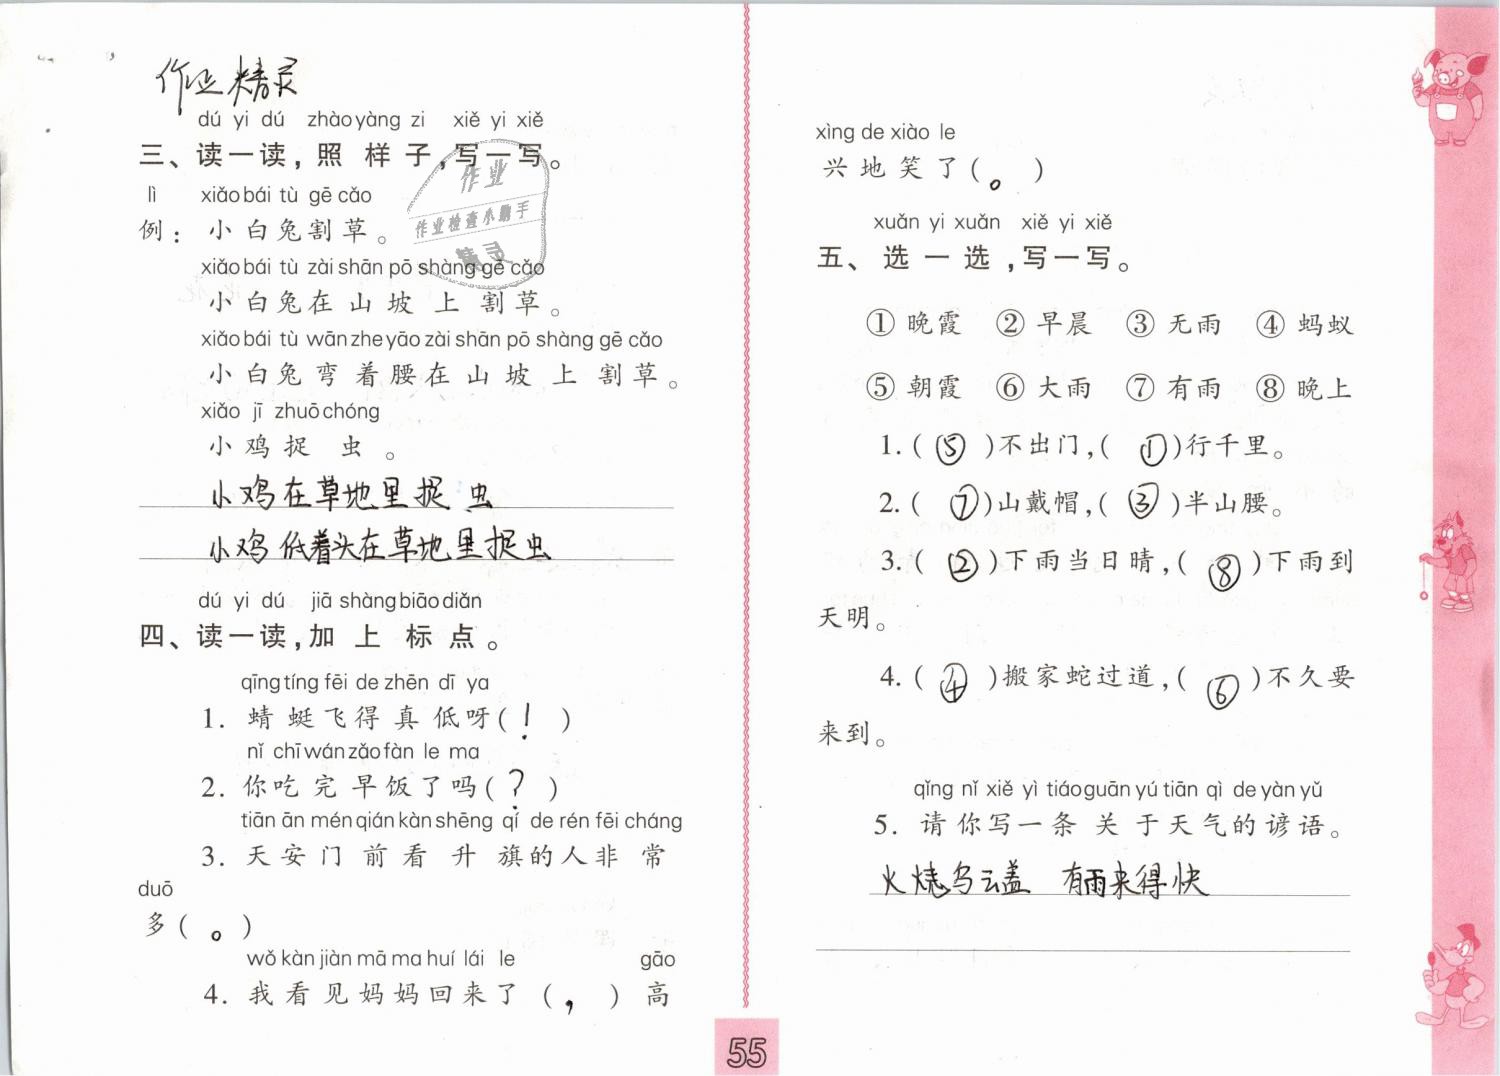 作业精灵
dú yi dú zhào yàng zi xiě yi xiě
三、读一读,照样子,写一写。
lì xiǎo bái tù gē cǎo
例：小白兔割草。
xiǎo bái tù zài shān pō shàng gē cǎo
小白兔在山坡上割草。
xiǎo bái tù wān zhe yāo zài shān pō shàng gē cǎo
小白兔弯着腰在山坡上割草。
xiǎo jī zhuō chóng
小鸡捉虫。
小鸡在草地里捉虫
小鸡低着头在草地里捉虫
dú yi dú jiā shàng biāo diǎn
四、读一读,加上标点。
qīng tíng fēi de zhēn dī ya
1. 蜻蜓飞得真低呀(！)
nǐ chī wán zǎo fàn le ma
2. 你吃完早饭了吗(？)
tiān ān mén qián kàn shēng qí de rén fēi cháng
3. 天安门前看升旗的人非常
duō
多(。)
wǒ kàn jiàn mā ma huí lái le gāo
4. 我看见妈妈回来了(，)高
作业
作业检查小助手
精灵
55
xìng de xiào le
兴地笑了(。)
xuǎn yi xuǎn xiě yi xiě
五、选一选,写一写。
①晚霞 ②早晨 ③无雨 ④蚂蚁
⑤朝霞 ⑥大雨 ⑦有雨 ⑧晚上
1. (⑤)不出门,(①)行千里。
2. (⑦)山戴帽,(③)半山腰。
3. (②)下雨当日晴,(⑧)下雨到
天明。
4. (④)搬家蛇过道,(⑥)不久要
来到。
qǐng nǐ xiě yì tiáo guān yú tiān qì de yàn yǔ
5. 请你写一条关于天气的谚语。
火烧乌云盖 有雨来得快